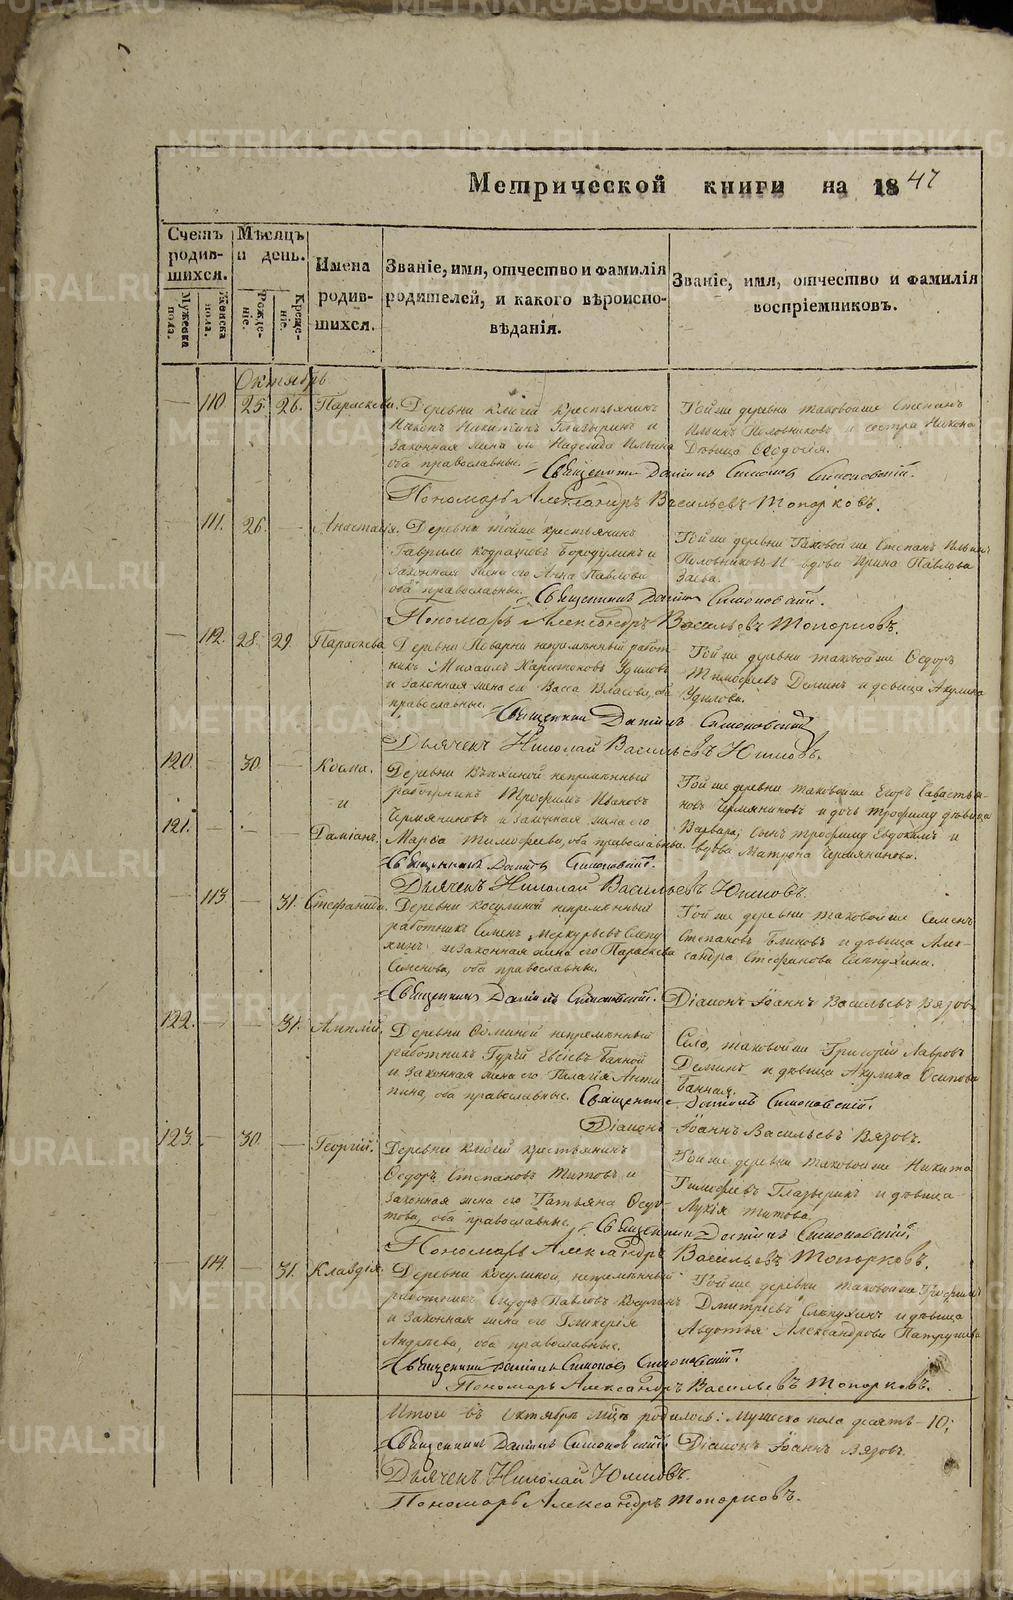 METRIKI.GASO-URAL.RU
Метрической книги на 1847
Счетъ родившихся.
Мѣсяцъ и день.
Имена родившихся.
Званіе, имя, отчество и фамилія родителей, и какого вѣроисповѣданія.
Званіе, имя, отчество и фамилія воспріемниковъ.
Мужеска пола.
Женска пола.
Рожденіе.
Крещеніе.
Октябрь
110 25. 26. Параскева.
Деревни Ключей крестьянинъ
Никонъ Никитинъ Глазыринъ и
законная жена его Надежда Ильина
оба православные.
Той же деревни таковой же Степанъ
Ильинъ Половниковъ и сестра Никона
дѣвица Ѳеодосія.
Священникъ Даніилъ Симонов Симоновскій.
Пономарь Александръ Васильевъ Топорковъ.
111. 26. Анастасія.
Деревни тойже крестьянинъ
Гаврилъ Бородулинъ и
законная жена его Анна Павлова
оба православные.
Той же деревни таковой же Степанъ Ильинъ
Половниковъ и вдова Ирина Павлова
Священникъ Даніилъ Симоновскій.
Пономарь Александръ Васильевъ Топорковъ.
112. 28. 29. Параскева
Деревни непремѣнный работ-
никъ Михаилъ Харитоновъ Удиловъ
и законная жена его Васса Власова, оба
православные.
Той же деревни таковой же Ѳедоръ
Тимофѣевъ Деминъ и дѣвица Акулина
Удилова.
Священникъ Даніилъ Симоновскій
Дьячекъ Николай Васильевъ Юшковъ.
120. 30. Косма.
и
121. Даміанъ.
Деревни непремѣнный
работникъ Трофимъ Ивановъ
Чермяниновъ и законная жена его
Марѳа Тимофѣева, оба православные.
Той же деревни таковой же Егоръ Савастья-
новъ Чермяниновъ и дочь Трофима дѣвица
Варвара; сынъ Трофима Евдокимъ и
вдова Матрона Чермянинова.
Священникъ Даніилъ Симоновскій.
Дьячекъ Николай Васильевъ Юшковъ.
113 31. Стефанида.
Деревни Косулиной непремѣнный
работникъ Семенъ Меркурьевъ Слепу-
хинъ и законная жена его Параскева
Семенова, оба православные.
Той же деревни таковой же Семенъ
Степановъ Блиновъ и дѣвица Алек-
сандра Стефанова Слепухина.
Священникъ Даніилъ Симоновскій. Діаконъ Іоаннъ Васильевъ Вязовъ.
122. 31. Амплій.
Деревни непремѣнный
работникъ Гурій Евсіевъ Банной
и законная жена его Пелагія Анти-
пина, оба православные.
Села, таковой же Григорій Лавровъ
Деминъ и дѣвица Акулина Осипова
Банная.
Священникъ Даніилъ Симоновскій.
Діаконъ Іоаннъ Васильевъ Вязовъ.
123. 30. Георгій.
Деревни Ключей крестьянинъ
Ѳедоръ Степановъ Титовъ и
законная жена его Татьяна Ѳедо-
това, оба православные.
Той же деревни таковой же Никита
Глазыринъ и дѣвица
Лукія Титова.
Священникъ Даніилъ Симоновскій.
Пономарь Александръ Васильевъ Топорковъ.
114. 31. Клавдія.
Деревни Косулиной, непремѣнный
работникъ Сидоръ Павловъ
и законная жена его Гликерія
Андреева, оба православные.
Той же деревни таковой же Трофимъ
Дмитріевъ Слепухинъ и дѣвица
Авдотья Александрова Патрушева
Священникъ Даніилъ Симонов Симоновскій.
Пономарь Александръ Васильевъ Топорковъ.
Итого въ Октябрѣ мцѣ родилось: мужеска пола десять - 10;
Священникъ Даніилъ Симоновскій Діаконъ Іоаннъ Вязовъ.
Дьячекъ Николай Юшковъ.
Пономарь Александръ Топорковъ.